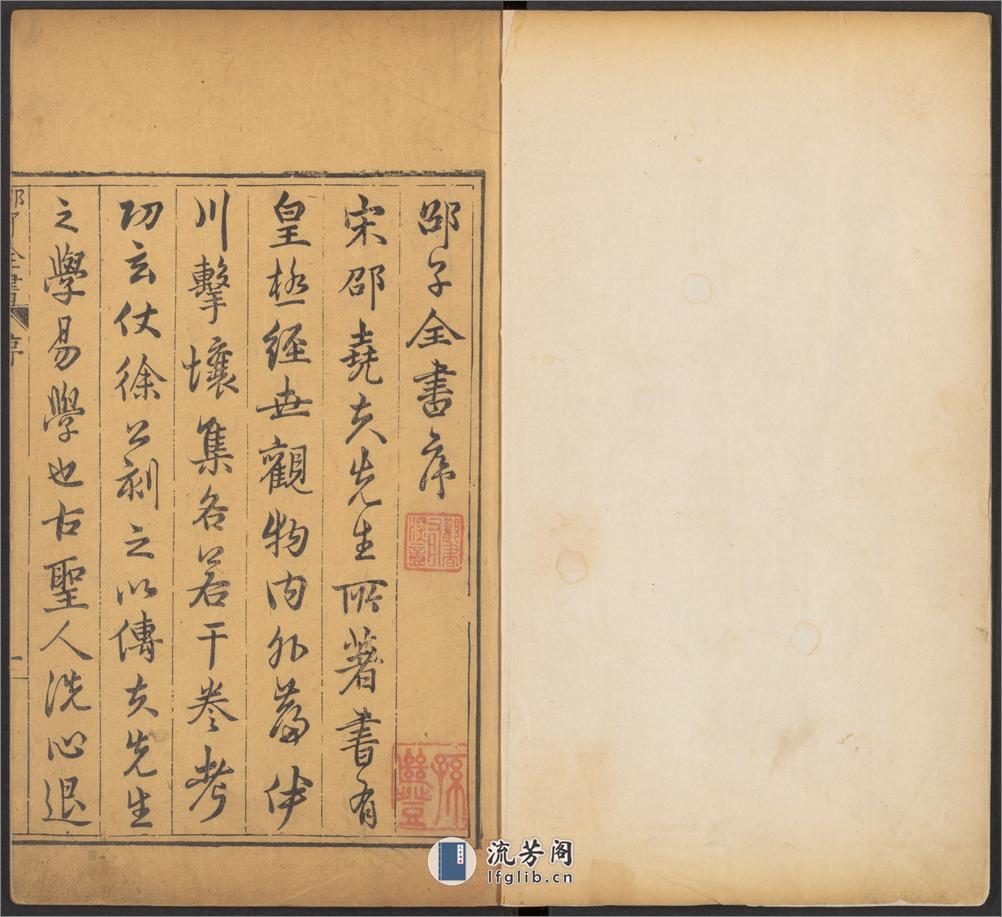 邵子全書序
宋邵堯夫先生所著書有
皇極經世觀物内外篇伊
川擊壤集各若干卷考
功玄仗徐公刻之以傳夫先生
之學易學也古聖人洗心退
邵子全書
序
一
觀書
孫
豐
流芳阁
lfglib.cn